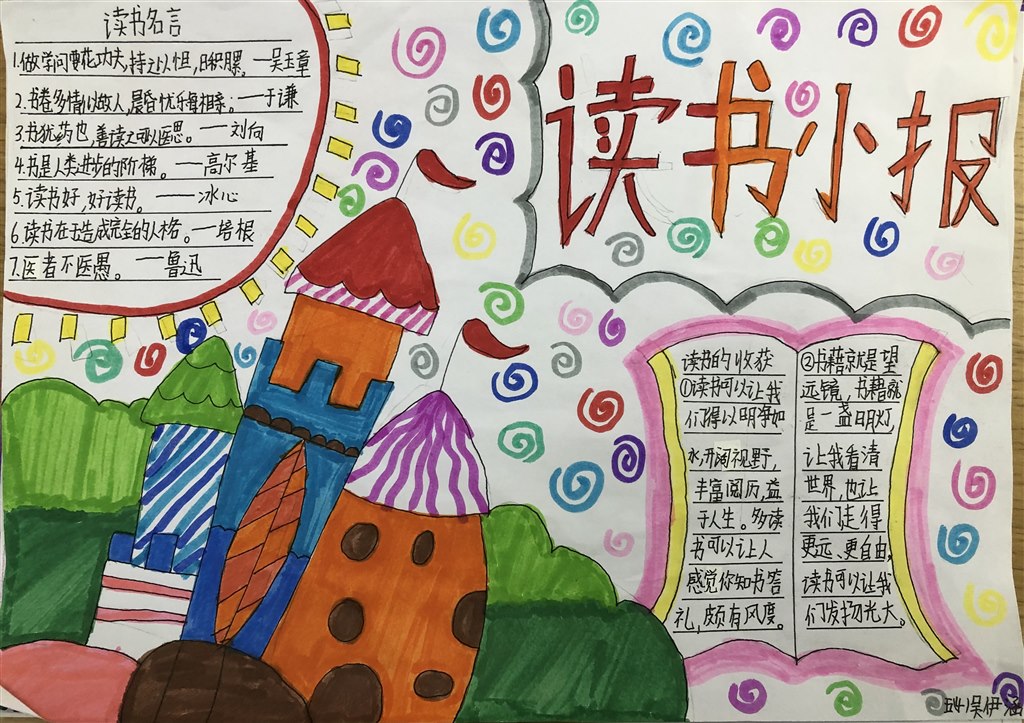 读书名言
1.做学问要花功夫,持之以恒,日积月累。——吴玉章
2.书卷多情似故人,晨昏忧乐每相亲。——于谦
3.书犹药也,善读之可以医愚。——刘向
4.书是人类进步的阶梯。——高尔基
5.读书好,好读书。——冰心
6.读书在于造成完全的人格。——培根
7.医者不医愚。——鲁迅
读书小报
读书的收获
①读书可以让我
们得以明净如
水,开阔视野,
丰富阅历,益
于人生。多读
书可以让人
感觉你知书答
礼,颇有风度。
②书籍就是望
远镜,书籍就
是一盏日月灯,
让我看清
世界,也让
我们走得
更远、更自由,
读书可以让我
们发扬光大。
吴伊涵